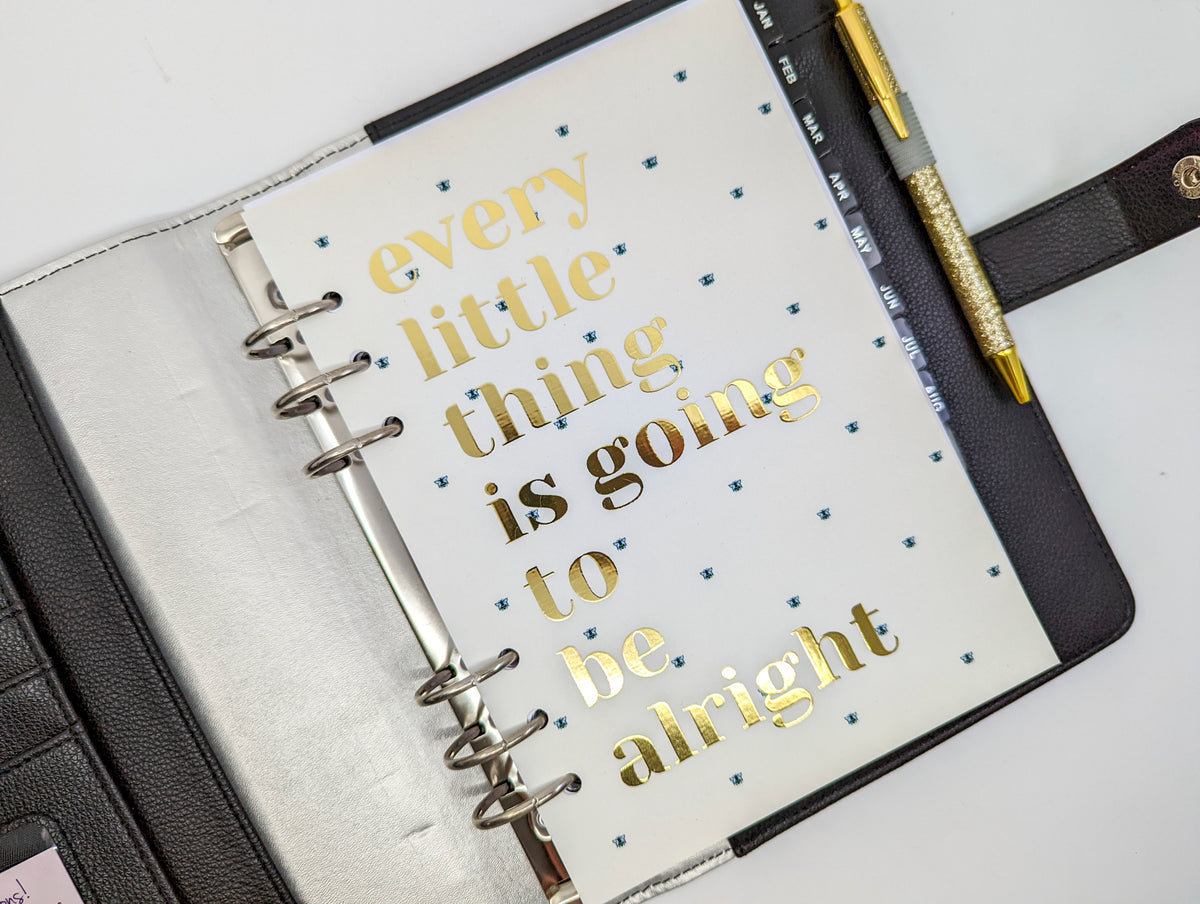 every
little
thing
is going
to
be
alright
JAN
FEB
MAR
APR
MAY
JUN
JUL
AUG